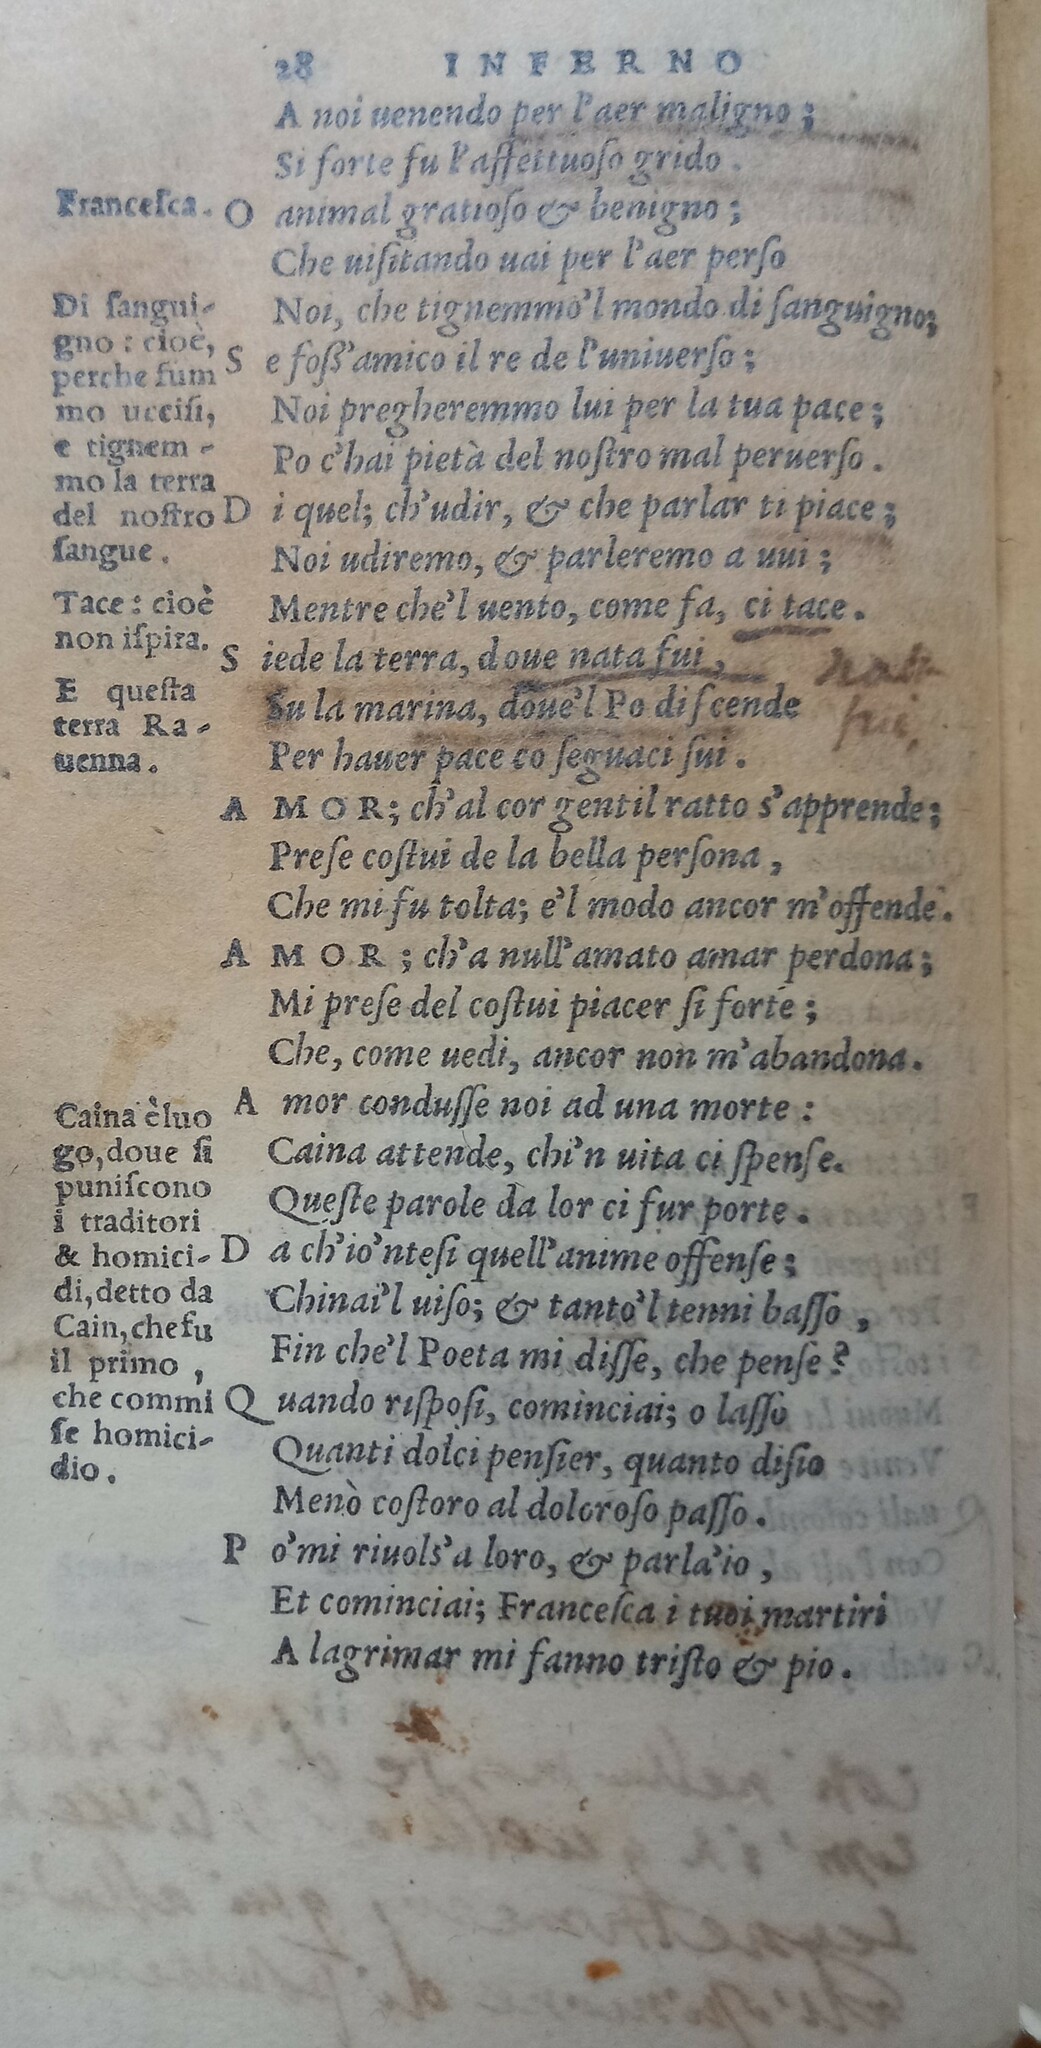 28 INFERNO
A noi uenendo per l'aer maligno;
Si forte fu l'affettuoſo grido.
Franceſca.
O animal gratioſo & benigno;
Che uiſitando uai per l'aer perſo
Noi, che tignemmo'l mondo di ſanguigno;
S e foſſ'amico il re de l'uniuerſo;
Noi pregheremmo lui per la tua pace;
Po c'hai pietà del noſtro mal peruerſo.
D i quel; ch'udir, & che parlar ti piace;
Noi udiremo, & parleremo a uui;
Mentre che'l uento, come fa, ci tace.
S iede la terra, doue nata fui,
Su la marina, doue'l Po diſcende
Per hauer pace co ſeguaci ſui.
A MOR; ch'al cor gentil ratto s'apprende;
Preſe coſtui de la bella perſona,
Che mi fu tolta; e'l modo ancor m'offende.
A MOR; ch'a null'amato amar perdona;
Mi preſe del coſtui piacer ſi forte;
Che, come uedi, ancor non m'abandona.
A mor conduſſe noi ad una morte:
Caina attende, chi'n uita ci ſpenſe.
Queſte parole da lor ci fur porte.
D a ch'io'nteſi quell'anime offenſe;
Chinai'l uiſo; & tanto'l tenni baſſo,
Fin che'l Poeta mi diſſe, che penſe?
Q uando riſpoſi, cominciai; o laſſo
Quanti dolci penſier, quanto diſio
Menò coſtoro al doloroſo paſſo.
P o'mi riuolſ'a loro, & parla'io,
Et cominciai; Franceſca i tuoi martiri
A lagrimar mi fanno triſto & pio.
Di ſangui-
gno: cioè,
perche fum
mo ucciſi,
e tignem-
mo la terra
del noſtro
ſangue.
Tace: cioè
non iſpira.
E queſta
terra Ra-
uenna.
Caina è luo
go, doue ſi
puniſcono
i traditori
& homici-
di, detto da
Cain, che fu
il primo,
che commi
ſe homici-
dio.